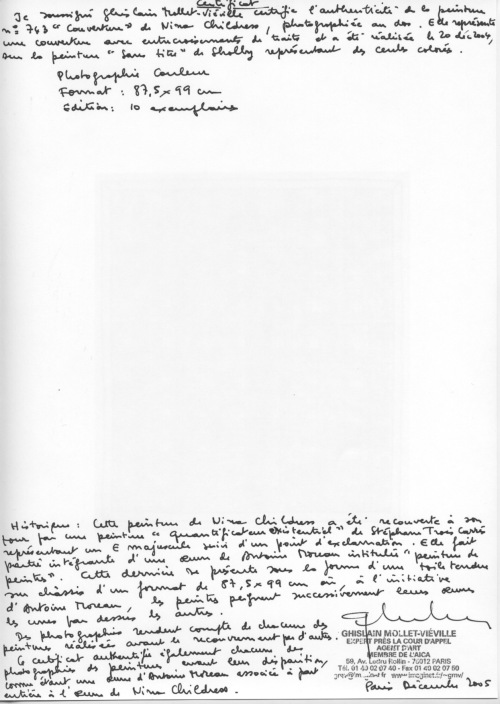 Certificat
Je soussigné Ghislain Mollet-Viéville certifie l'authenticité de la peinture
n° 743 "Couverture" de Nina Childress, photographiée au dos. Elle représente
une couverture avec entrecroisements de traits et a été réalisée le 20 déc 2004,
sur la peinture "Sans titre" de représentant des cercles colorés.
Photographie Couleur
Format : 87,5 x 99 cm
Edition : 10 exemplaires
Historique : Cette peinture de Nina Childress a été recouverte à son
tour par une peinture "quantificateur existentiel" de Stéphane Trois Carrés
représentant un E majuscule suivi d'un point d'exclamation. Elle fait
partie intégrante d'une œuvre de Antoine Moreau intitulée "peinture de
peintres". Cette dernière se présente sous la forme d'une toile tendue
sur châssis d'un format de 87,5 x 99 cm où, à l'initiative
d'Antoine Moreau, les peintres peignent successivement leurs œuvres
les unes par dessus les autres.
Des photographies rendent compte de chacune des
peintures réalisées avant le recouvrement par d'autres.
Ce certificat authentifie également chacune des
photographies des peintures, avant leur disparition,
comme étant une œuvre d'Antoine Moreau associée à part
entière à l'œuvre de Nina Childress.
GHISLAIN MOLLET-VIÉVILLE
EXPERT PRÈS LA COUR D'APPEL
AGENT D'ART
MEMBRE DE L'AICA
59, Av. Ledru Rollin - 75012 PARIS
Tél. 01 43 02 07 40 - Fax 01 43 02 07 50
Paris Décembre 2005